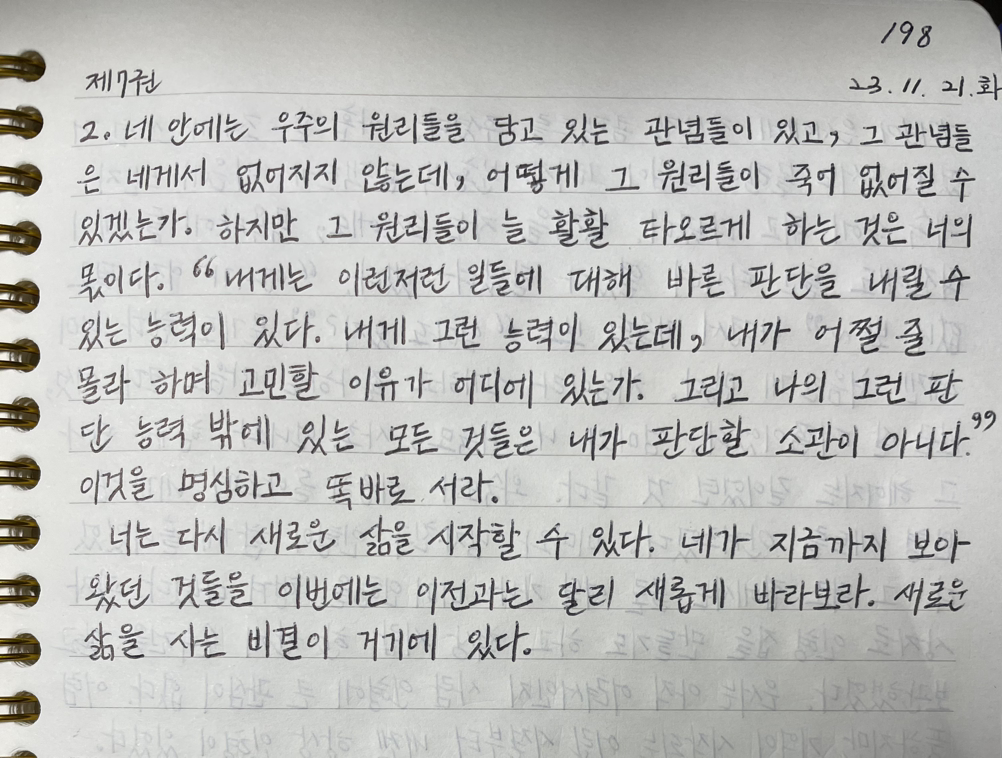 198
제7권 23. 11. 21. 화
2. 네 안에는 우주의 원리들을 담고 있는 관념들이 있고, 그 관념들
은 네게서 없어지지 않는데, 어떻게 그 원리들이 죽어 없어질 수
있겠는가. 하지만 그 원리들이 늘 활활 타오르게 하는 것은 너의
몫이다. “내게는 이런저런 일들에 대해 바른 판단을 내릴 수
있는 능력이 있다. 내게 그런 능력이 있는데, 내가 어쩔 줄
몰라 하며 고민할 이유가 어디에 있는가. 그리고 나의 그런 판
단 능력 밖에 있는 모든 것들은 내가 판단할 소관이 아니다.”
이것을 명심하고 똑바로 서라.
너는 다시 새로운 삶을 시작할 수 있다. 네가 지금까지 보아
왔던 것들을 이번에는 이전과는 달리 새롭게 바라보라. 새로운
삶을 사는 비결이 거기에 있다.